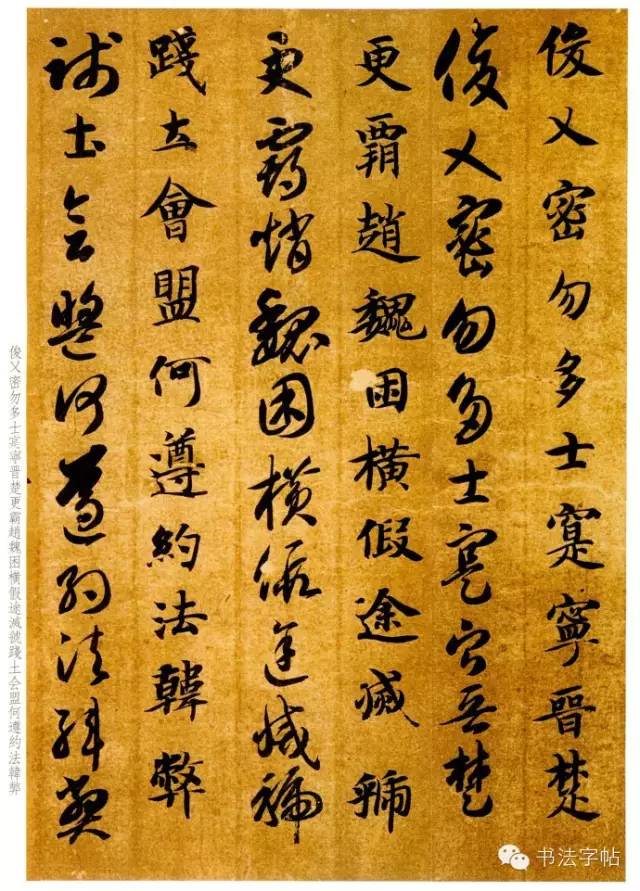 俊乂密勿多士寔寧晋楚
俊乂密勿多士寔寧晋楚
更霸趙魏困横假途滅虢
更霸趙魏困横假途滅虢
踐土會盟何遵約法韓弊
踐土會盟何遵約法韓弊
俊乂密勿多士寔寧晋楚更霸趙魏困横假途滅號踐土会盟何遵約法韓弊
书法字帖